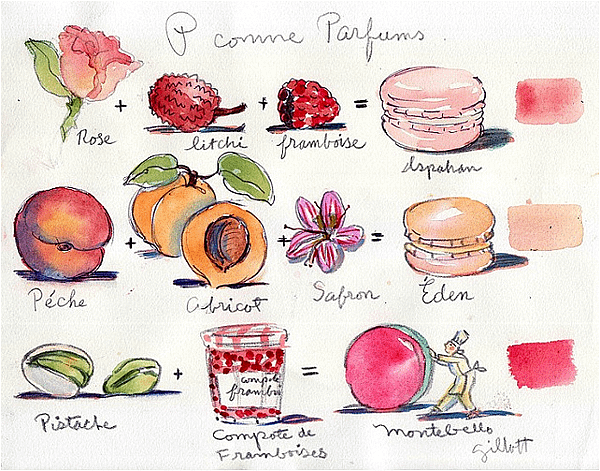 P comme Parfums
Rose + litchi + framboise = Ispahan
Pêche + Abricot + Safron = Éden
compote
frambo
Pistache + Compote de = Montebello
Framboises
Gillott